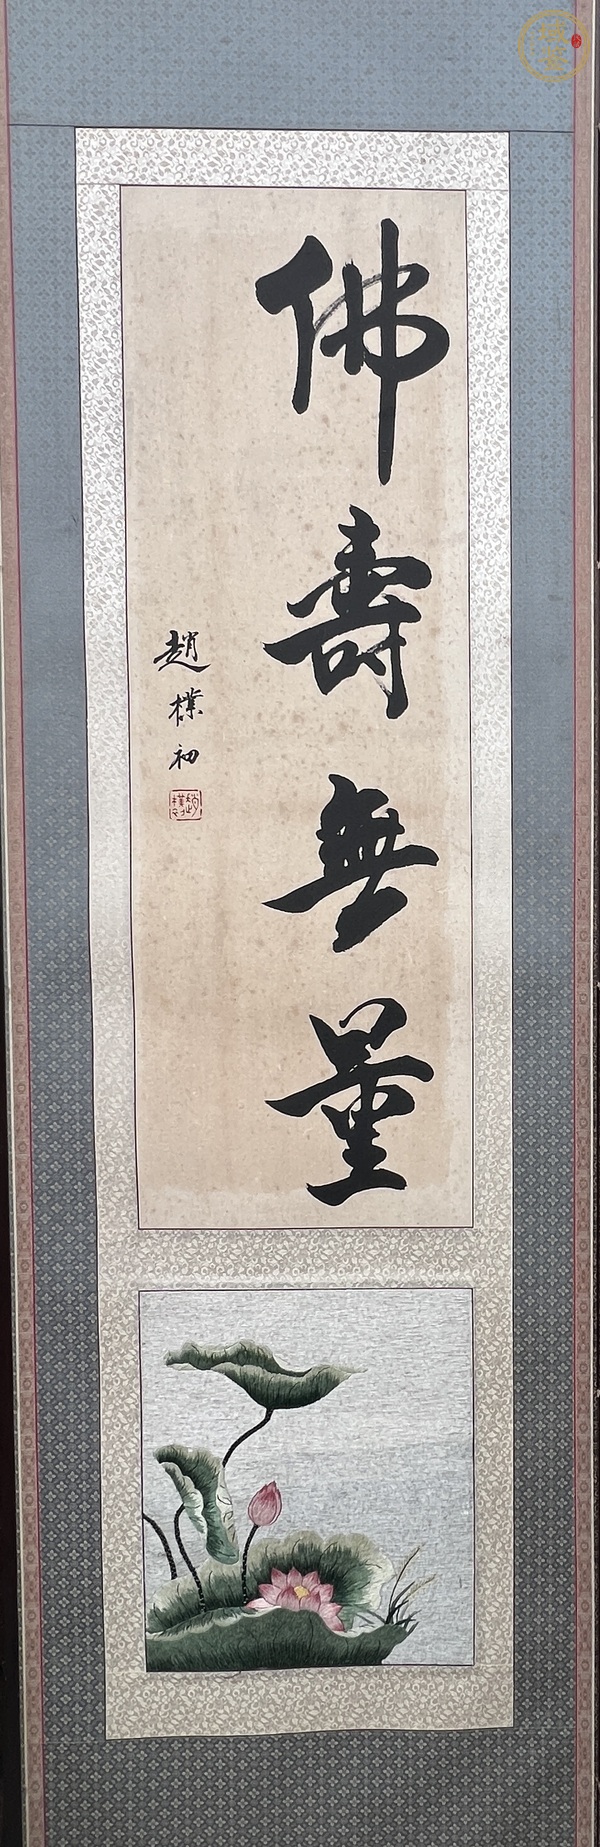 佛壽無量
趙樸初